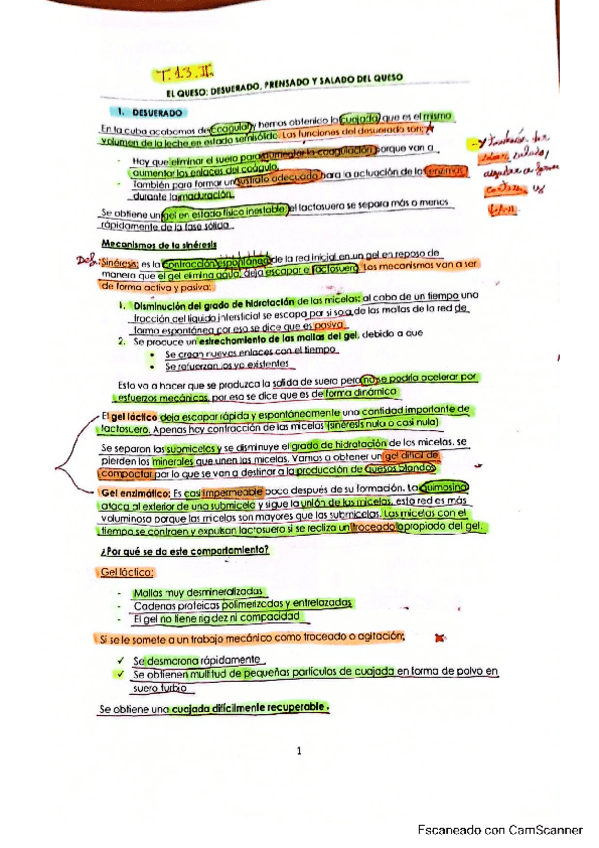 T.13.II.
EL QUESO: DESUERADO, PRENSADO Y SALADO DEL QUESO
1. DESUERADO
En la cuba acabamos de coagular y hemos obtenido la cuajada que es el mismo
volumen de la leche en estado semisólido. Las funciones del desuerado son:
- Hay que eliminar el suero para aumentar la coagulación porque van a
aumentar los enlaces del coágulo.
- También para formar un sustrato adecuado para la actuación de las enzimas
durante la maduración.
Se obtiene un gel en estado físico inestable, el lactosuero se separa más o menos
rápidamente de la fase sólida
Mecanismos de la sinéresis
Def: Sinéresis: es la contracción espontánea de la red inicial en un gel en reposo de
manera que el gel elimina agua, deja escapar e lactosuero. Los mecanismos van a ser
de forma activa y pasiva:
1. Disminución del grado de hidratación de las micelas: al cabo de un tiempo una
fracción del líquido intersticial se escapa por si sola de las mallas de la red de
forma espontánea por eso se dice que es pasiva.
2. Se produce un estrechamiento de las mallas del gel, debido a que
• Se crean nuevos enlaces con el tiempo
• Se refuerzan los ya existentes
Esto va a hacer que se produzca la salida de suero pero no se podría acelerar por
esfuerzos mecánicos, por eso se dice que es de forma dinámica
El gel láctico deja escapar rápida y espontáneamente una cantidad importante de
lactosuero. Apenas hay contracción de las micelas (sinéresis nula o casi nula)
Se separan las submicelas y se disminuye el grado de hidratación de las micelas, se
pierden los minerales que unen las micelas. Vamos a obtener un gel difícil de
compactar por lo que se van a destinar a la producción de quesos blandos
Gel enzimático: Es casi impermeable poco después de su formación. La quimosina
ataca al exterior de una submicela y sigue la unión de las micelas, esta red es más
voluminosa porque las micelas son mayores que las submicelas. Las micelas con el
tiempo se contraen y expulsan lactosuero si se realiza un troceado apropiado del gel.
¿Por qué se da este comportamiento?
Gel láctico:
- Mallas muy desmineralizadas
- Cadenas proteicas polimerizadas y entrelazadas
- El gel no tiene rigidez ni compacidad
Si se le somete a un trabajo mecánico como troceado o agitación:
✓ Se desmorona rápidamente
✓ Se obtienen multitud de pequeñas partículas de cuajada en forma de polvo en
suero turbio
Se obtiene una cuajada difícilmente recuperable.
1
Escaneado con CamScanner